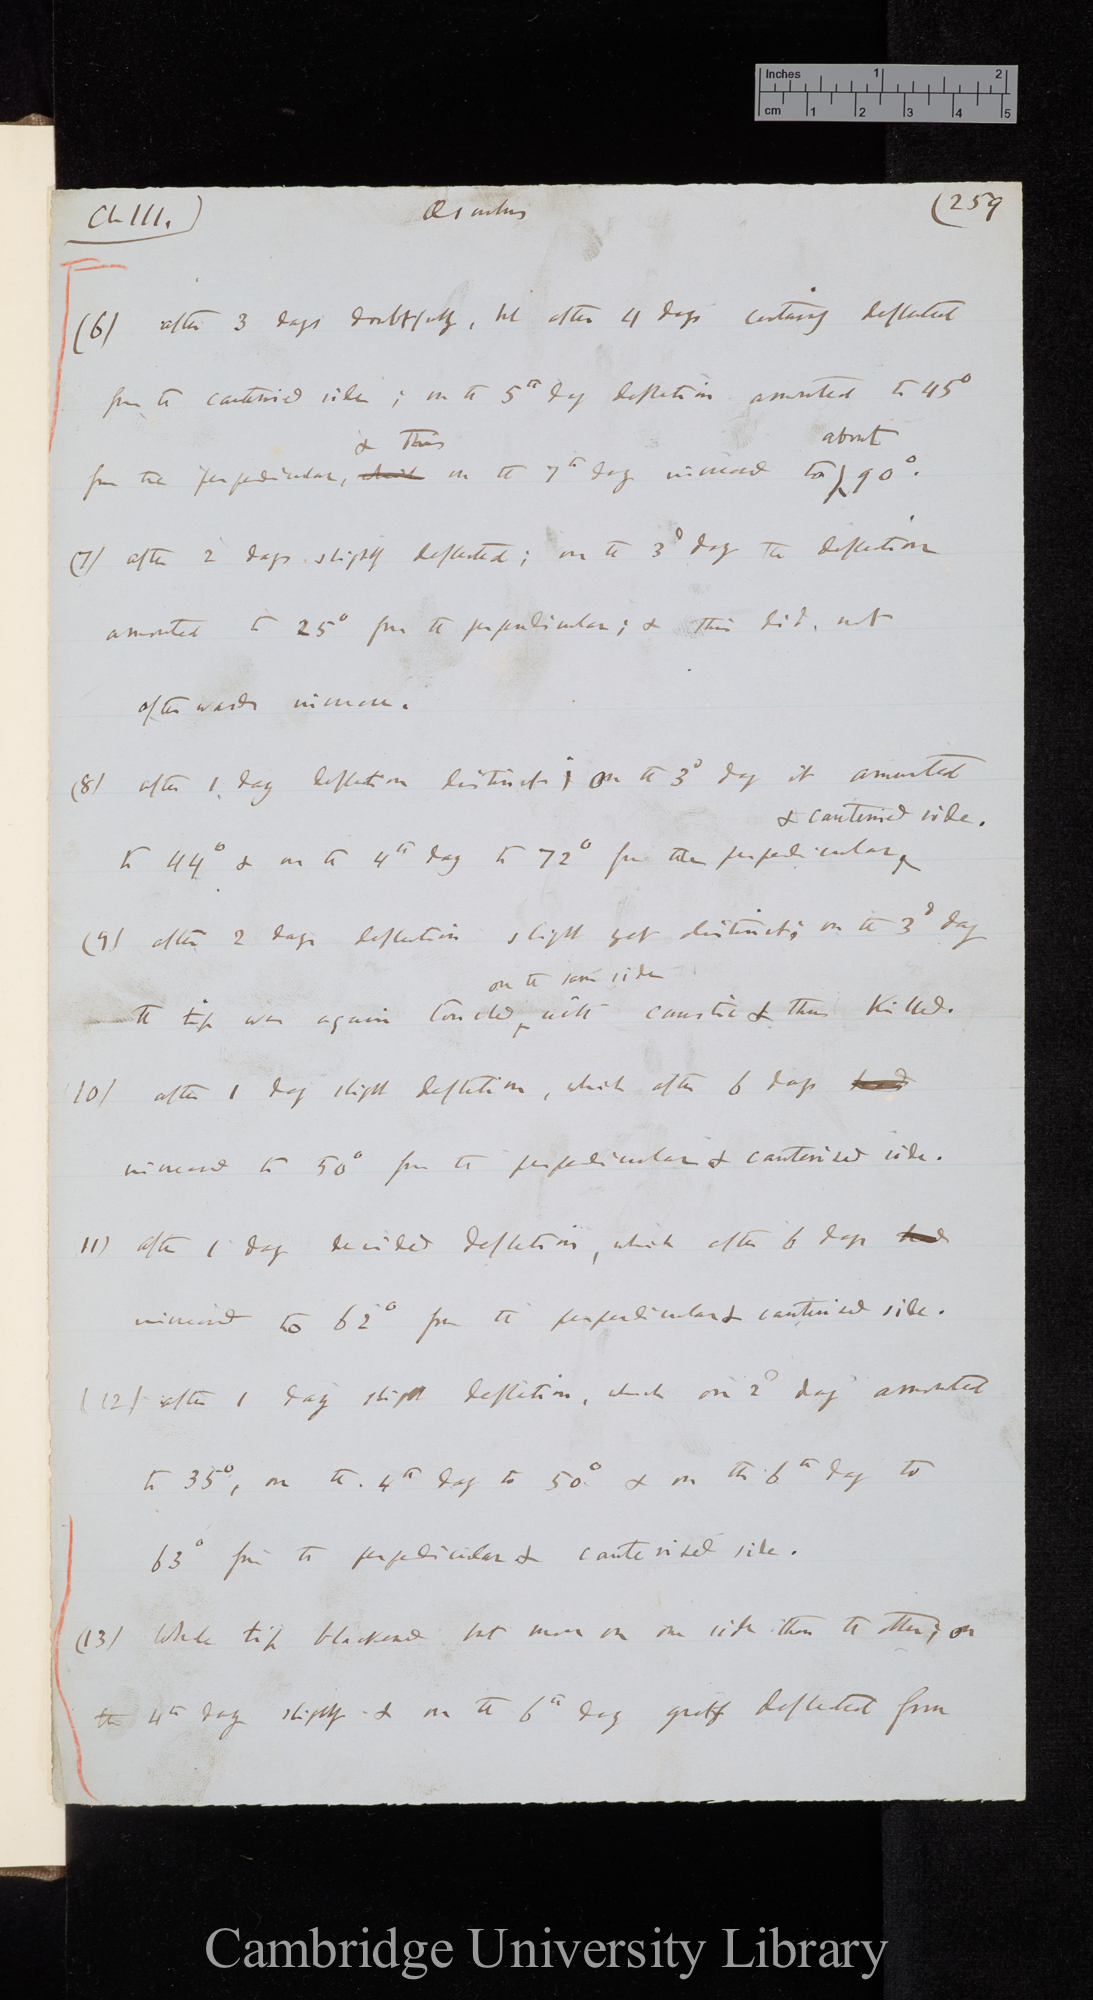 Inches 1 2
cm 1 2 3 4 5
Ch III.)
(259
(6) after 3 days doubtfully, but after 4 days certainly deflected
from the cauterised side; on the 5th day deflection amounted to 45°
& this about
from the perpendicular, which on the 7th day increased to 90°.
(7) after 2 days slightly deflected; on the 3d day the deflection
amounted to 25° from the perpendicular; & this did not
afterwards increase.
(8) after 1 day deflection distinct; on the 3d day it amounted
& cauterised side.
to 44° & on the 4th day to 72° from the perpendicular
(9) after 2 days deflection slight yet distinct; on the 3d day
on the same side
the tip was again touched with caustic & thus killed.
(10) after 1 day slight deflection, which after 6 days had
increased to 50° from the perpendicular & cauterised side.
11) after 1 day decided deflection, which after 6 days had
increased to 62° from the perpendicular & cauterised side.
(12) after 1 day slight deflection, which on 2d day amounted
to 35°, on the 4th day to 50° & on the 6th day to
63° from the perpendicular & cauterised side.
(13) Whole tip blackened but more on one side than the other; on
the 4th day slightly & on the 6th day greatly deflected from
Cambridge University Library